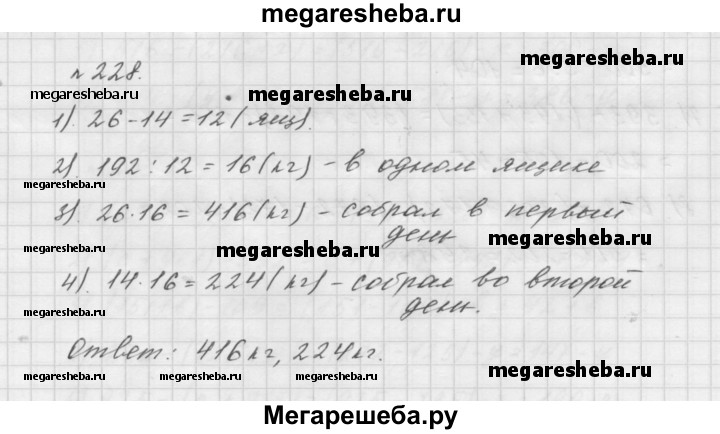 megaresheba.ru
№ 228.
megaresheba.ru
megaresheba.ru
megaresheba.ru
1). 26-14=12(ящ).
2). 192:12=16(кг)-в одном ящике
megaresheba.ru
3). 26·16=416(кг)-собрал в первый
день
megaresheba.ru
megaresheba.ru
megaresheba.ru
4). 14·16=224(кг)-собрал во второй
день.
megaresheba.ru
Ответ: 416кг, 224кг.
megaresheba.ru
megaresheba.ru
megaresheba.ru
megaresheba.ru
Мегарешеба.ру